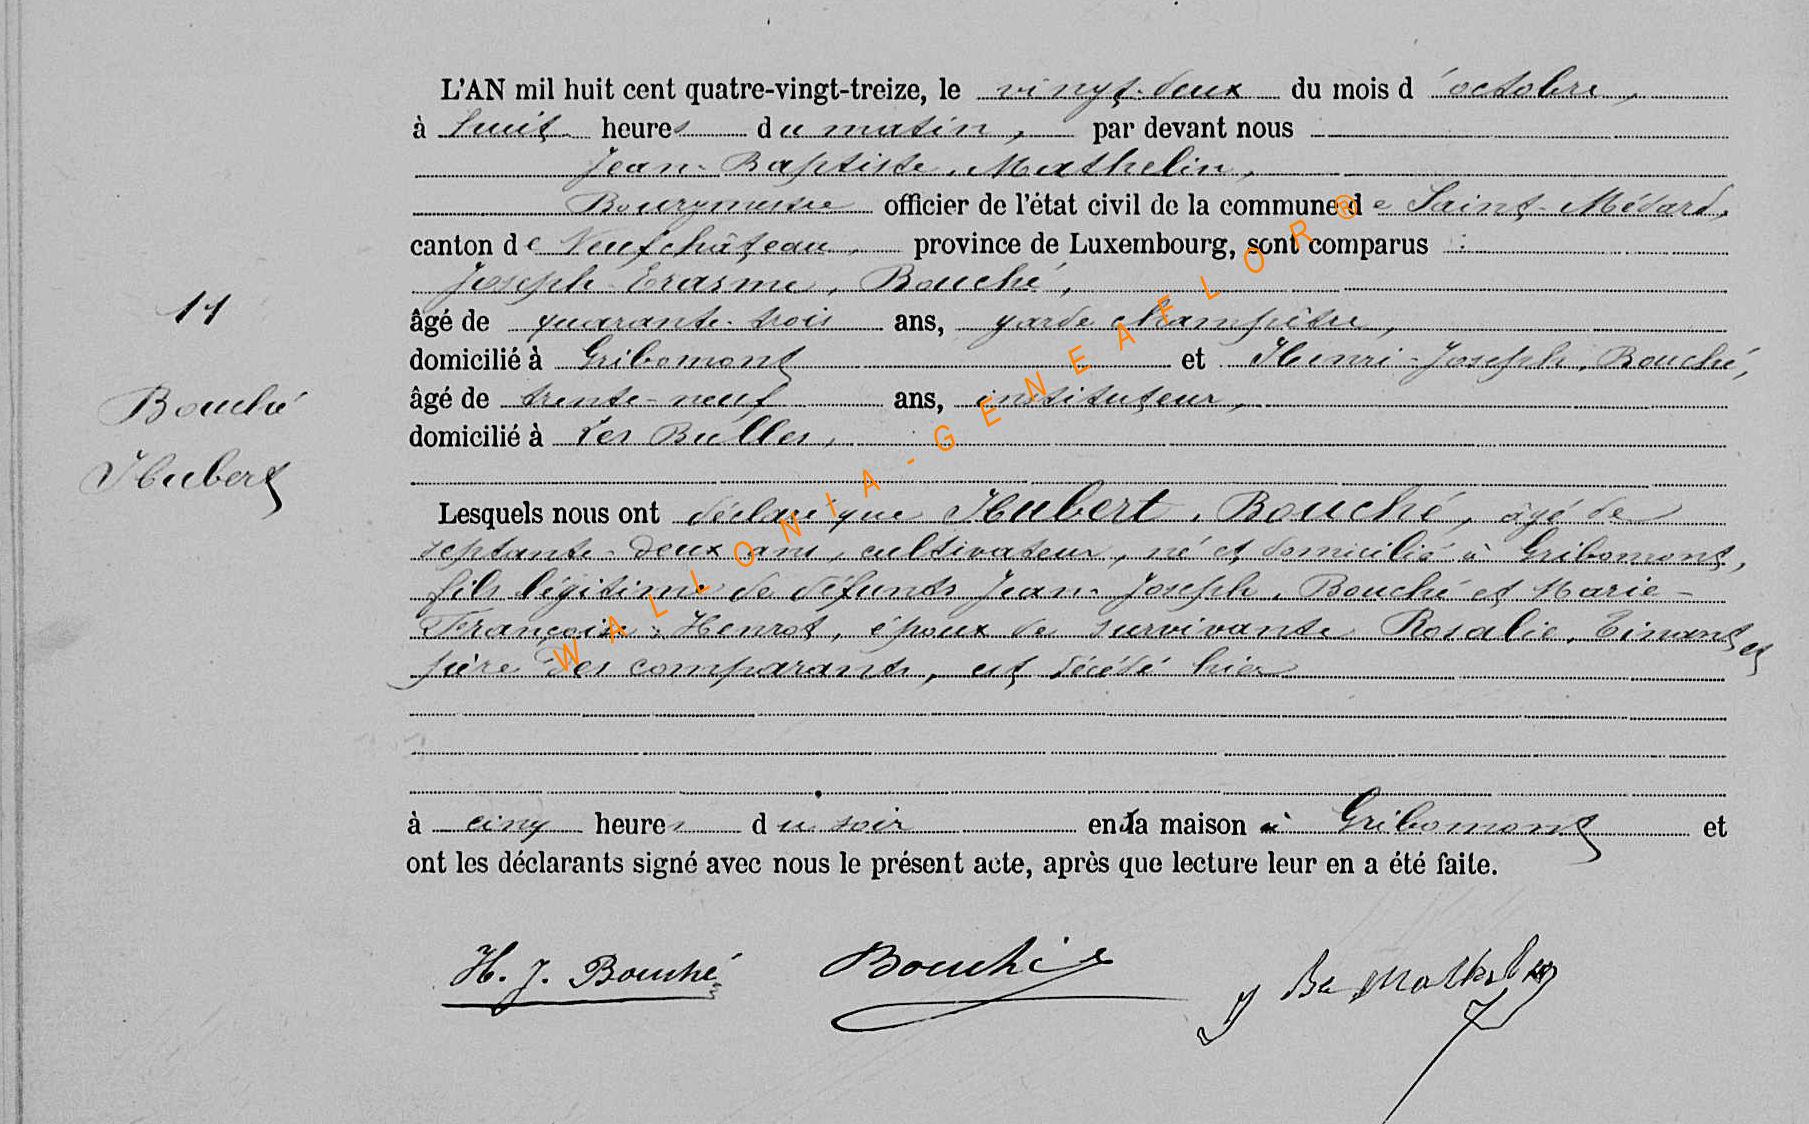 L'AN mil huit cent quatre-vingt-treize, le vingt-deux du mois d'octobre,
à huit heures du matin, par devant nous
Jean-Baptiste, Mathelin,
Bourgmestre officier de l'état civil de la commune de Saint-Médard,
canton de Neufchâteau, province de Luxembourg, sont comparus :
Joseph-Erasme, Bouché,
11
âgé de quarante-trois ans, garde champêtre,
domicilié à Gribomont et Henri-Joseph, Bouché,
Bouché
âgé de trente-neuf ans, instituteur,
domicilié à Les Bulles,
Hubert
Lesquels nous ont déclaré que Hubert, Bouché, âgé de
septante-deux ans, cultivateur, né et domicilié à Gribomont,
fils légitime de défunts Jean-Joseph, Bouché et Marie-
Françoise, Henrot, époux de survivante Rosalie, Tinant et
père des comparants, est décédé hier
à cinq heures du soir en la maison à Gribomont et
ont les déclarants signé avec nous le présent acte, après que lecture leur en a été faite.
H. J. Bouché Bouché J Bte Mathelin
WALLONIA-GENEAFLOR®